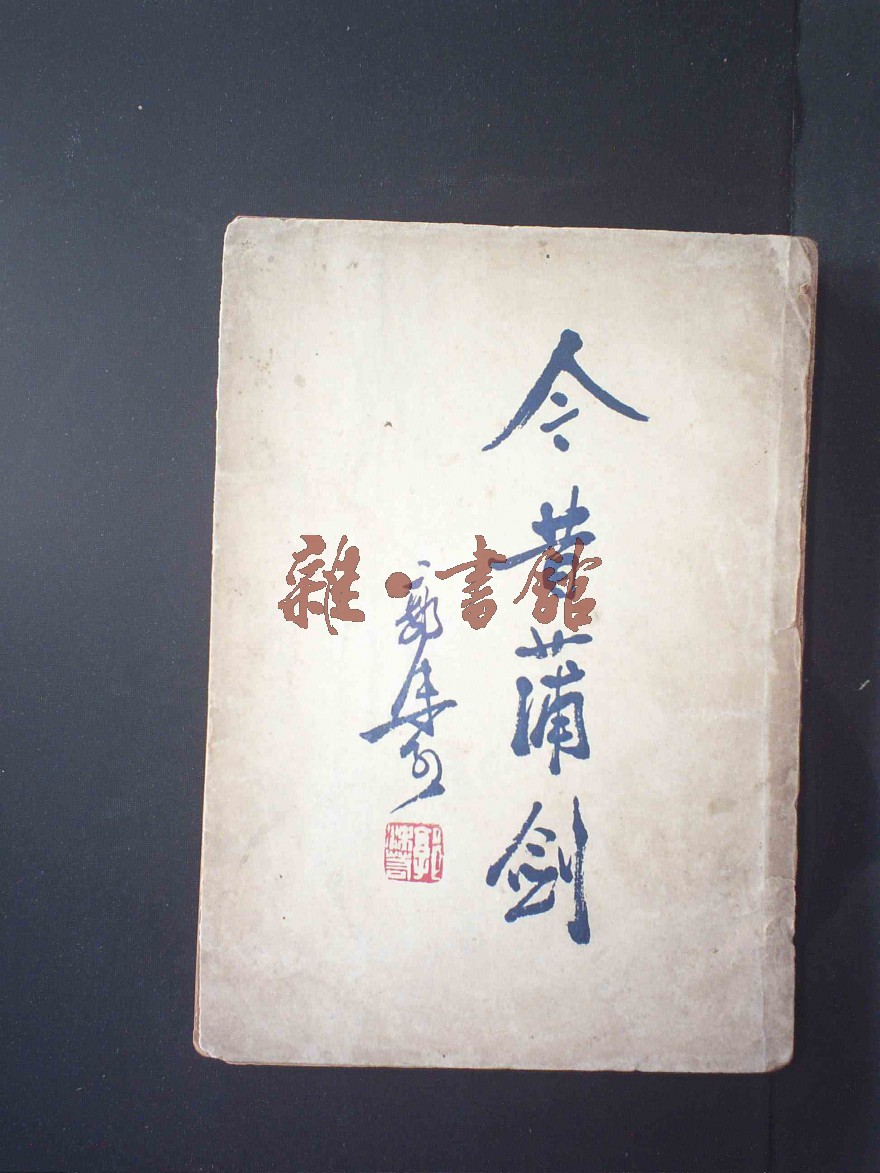 今昔蒲剑
郭沫若
郭沫若
雜·書館